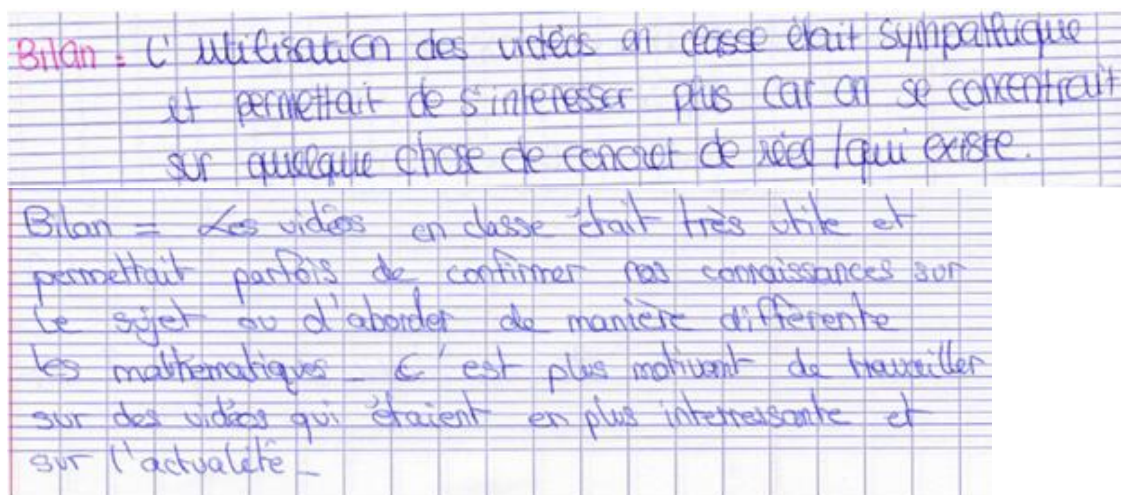 Bilan : L'utilisation des vidéos en classe était sympathique
et permettait de s'interesser plus car on se concentrait
sur quelque chose de concret de réel / qui existe.
Bilan = Les vidéos en classe était très utile et
permettait parfois de confirmer nos connaissances sur
le sujet ou d'aborder de manière différente
les mathematiques _ C'est plus motivant de travailler
sur des vidéos qui étaient en plus interressante et
sur l'actualité _